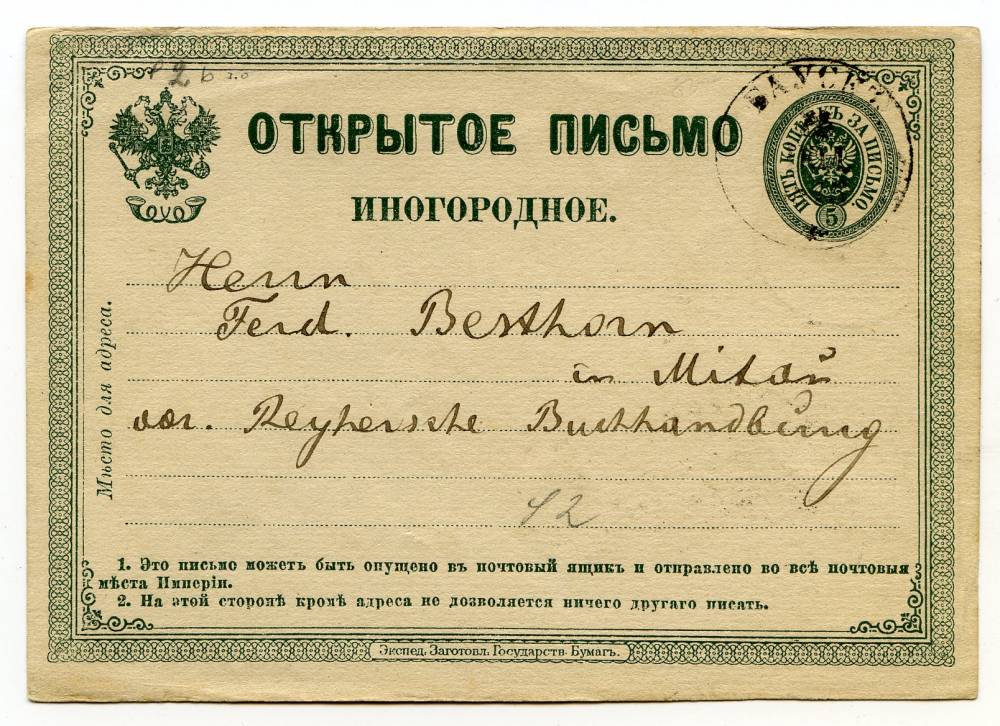 ОТКРЫТОЕ ПИСЬМО
ИНОГОРОДНОЕ.
БАУСК
ПЯТЬ КОПѢЕКЪ ЗА ПИСЬМО
5
Мѣсто для адреса.
Herrn
Ferd. Besthorn
in Mitau
vor. Reyhersche Buchhandlung
42
1. Это письмо можетъ быть опущено въ почтовый ящикъ и отправлено во всѣ почтовыя
мѣста Имперіи.
2. На этой сторонѣ кромѣ адреса не дозволяется ничего другаго писать.
Экспед. Заготовл. Государств. Бумагъ.